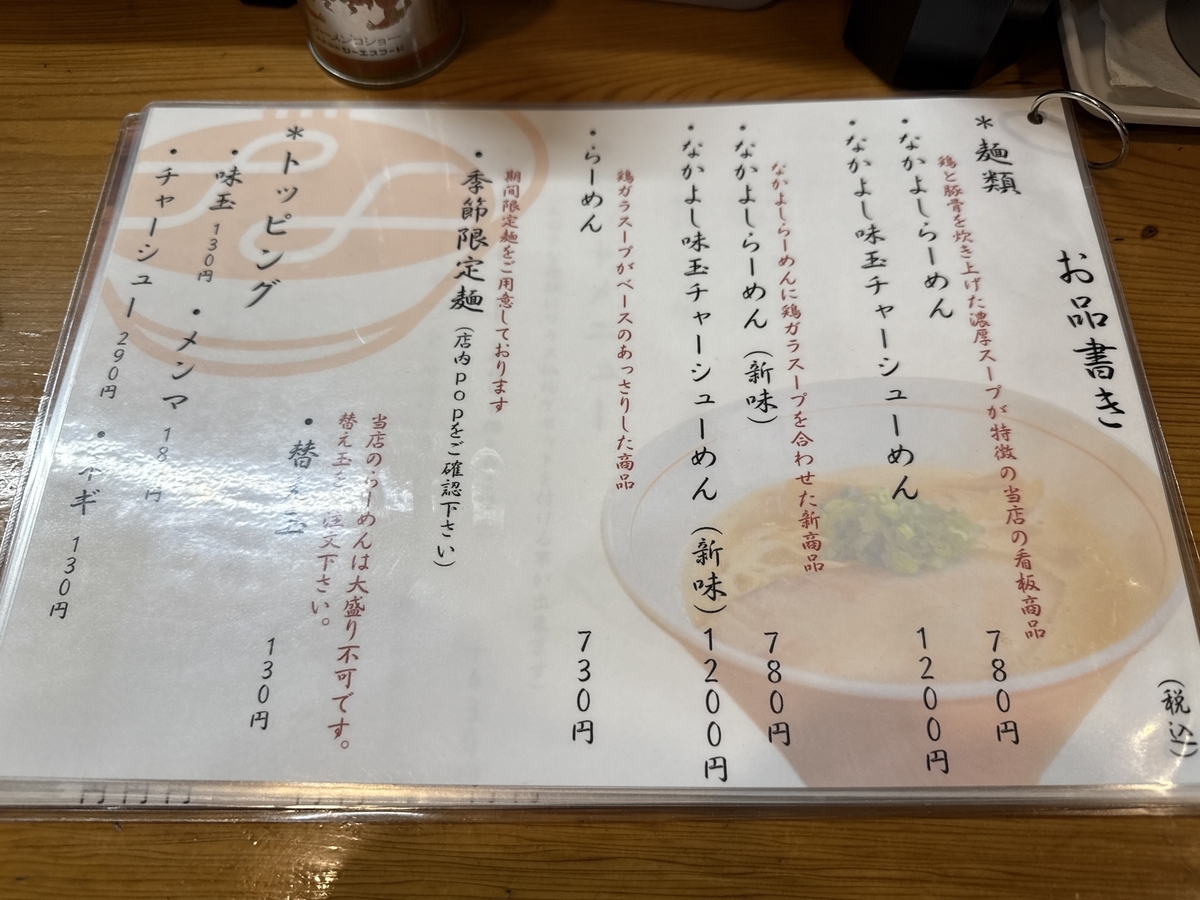 お品書き
(税込)
*麺類
鶏と豚骨を炊き上げた濃厚スープが特徴の当店の看板商品
・なかよしらーめん 780円
・なかよし味玉チャーシューめん 1200円
なかよしらーめんに鶏ガラスープを合わせた新商品
・なかよしらーめん(新味) 780円
・なかよし味玉チャーシューめん(新味) 1200円
鶏ガラスープがベースのあっさりした商品
・らーめん 730円
期間限定麺をご用意しております
・季節限定麺(店内popをご確認下さい)
当店のらーめんは大盛り不可です。
替え玉を注文下さい。
・替え玉 130円
*トッピング
・味玉 130円
・メンマ 18円
・チャーシュー 290円
・ネギ 130円
円円円